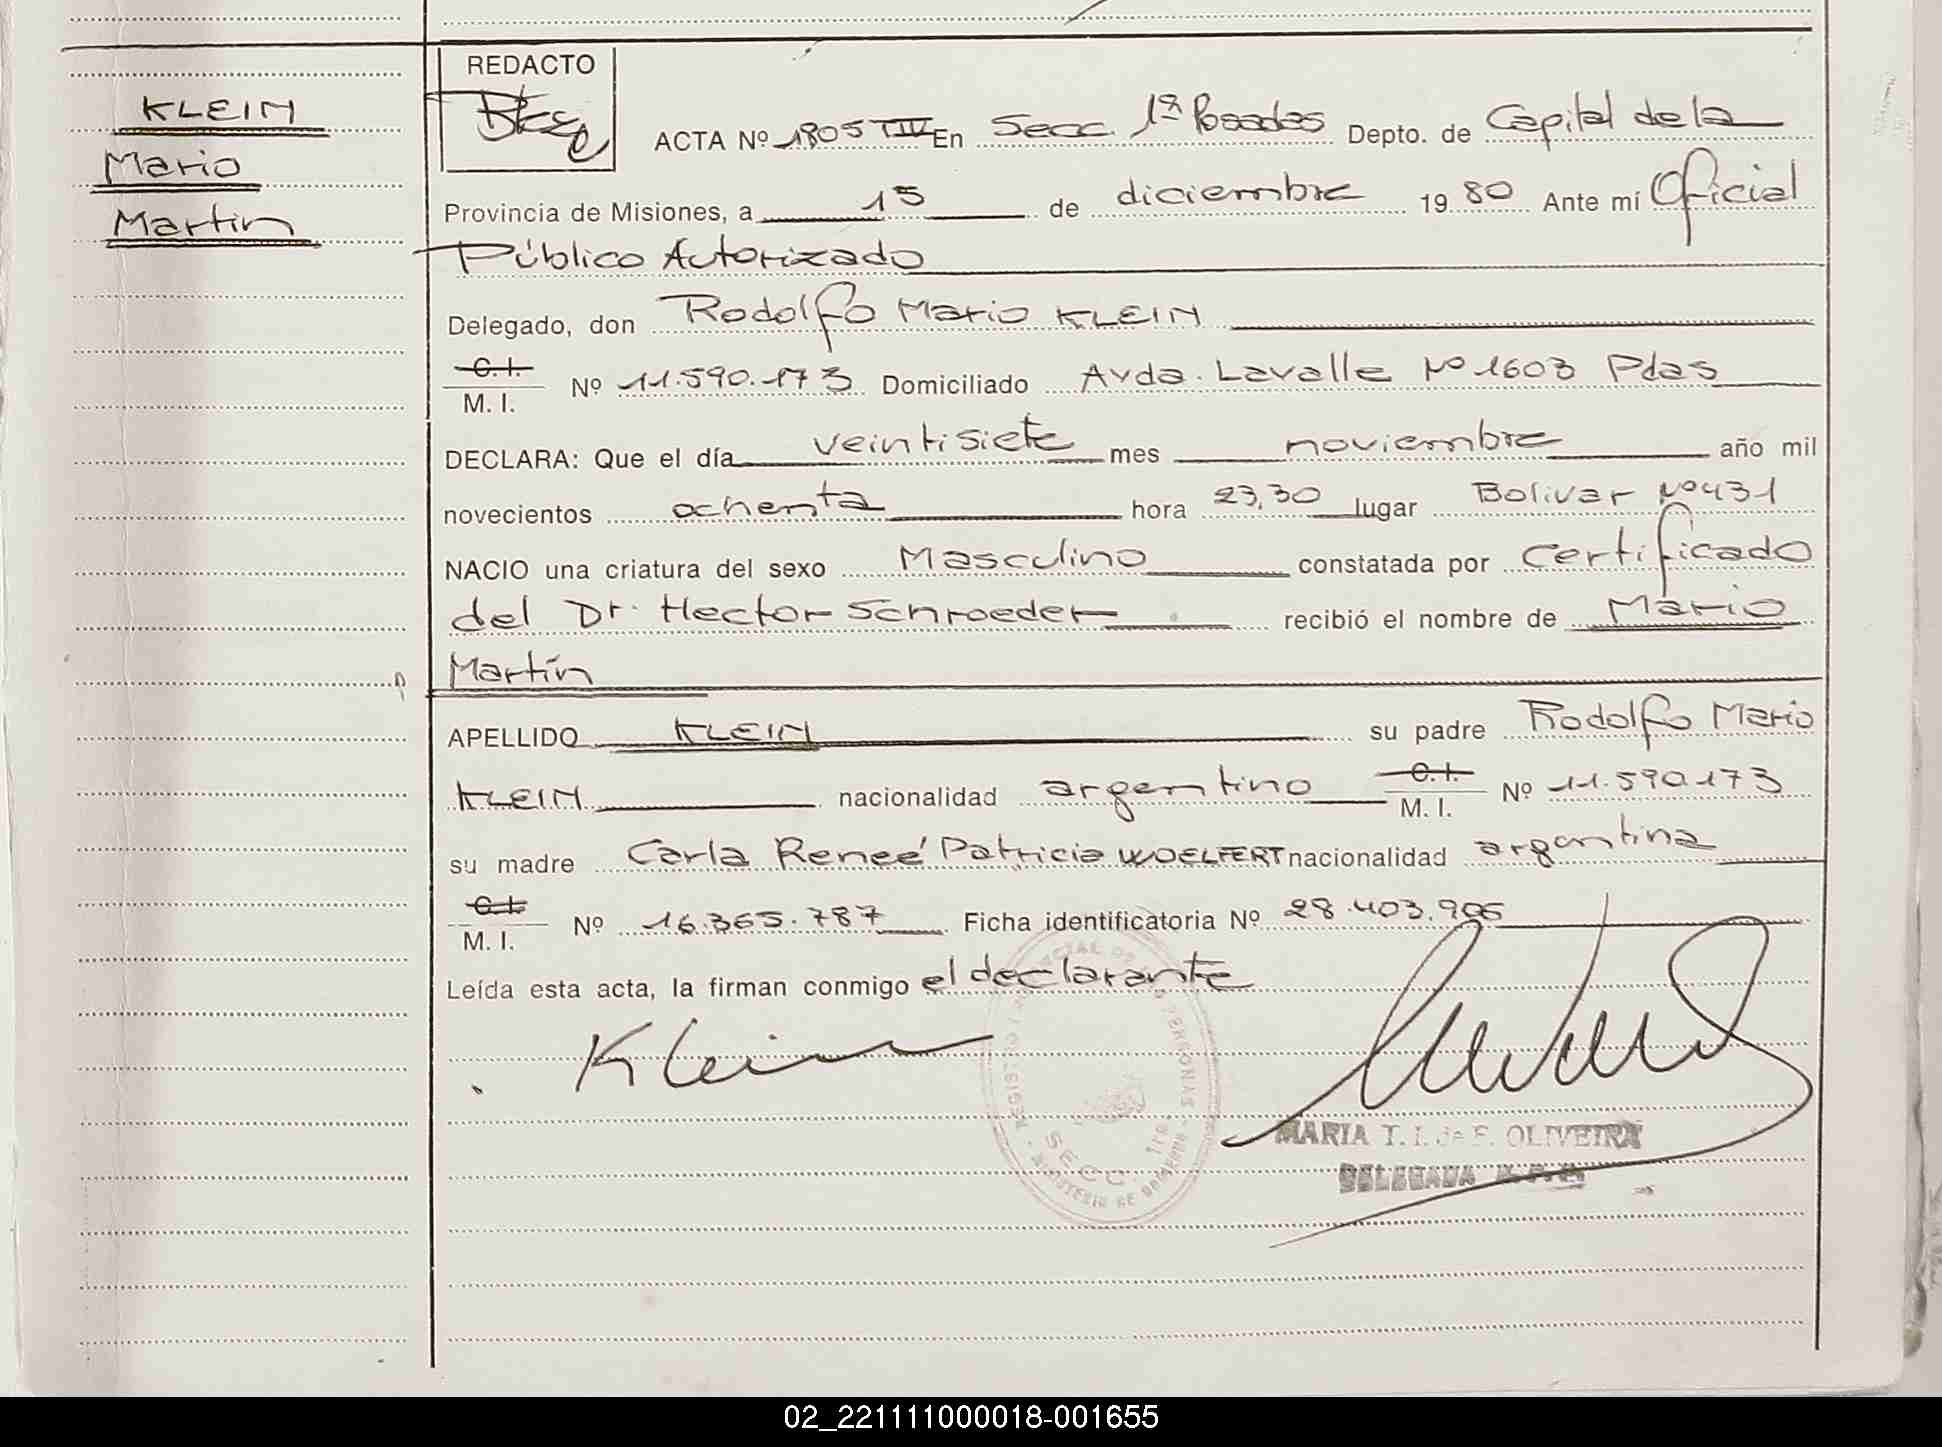 KLEIN
Mario
Martín
REDACTO
ACTA Nº 1805 TIV En Secc. 1ª Posadas Depto. de Capital de la
Provincia de Misiones, a 15 de diciembre 19 80 Ante mí Oficial
Público Autorizado
Delegado, don Rodolfo Mario KLEIN
C. I. M. I. Nº 11.590.173 Domiciliado Avda. Lavalle Nº 1603 Pdas
DECLARA: Que el día veintisiete mes noviembre año mil
novecientos ochenta hora 23,30 lugar Bolivar Nº 431
NACIO una criatura del sexo Masculino constatada por Certificado
del Dr. Hector Schroeder recibió el nombre de Mario
Martín
APELLIDO KLEIN su padre Rodolfo Mario
KLEIN nacionalidad argentino C. I. M. I. Nº 11.590.173
su madre Carla Reneé Patricia WOELFERT nacionalidad argentina
C. I. M. I. Nº 16.365.787 Ficha identificatoria Nº 28.403.906
Leída esta acta, la firman conmigo el declarante
Klein
MARIA T. I. de F. OLIVEIRA
DELEGADA
SECC. 1ra
02_221111000018-001655